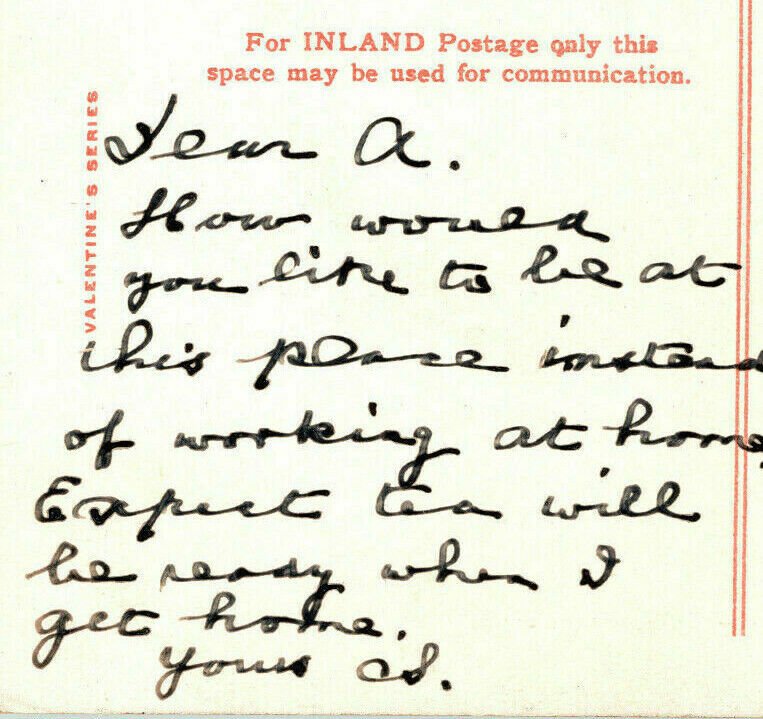 For INLAND Postage only this
space may be used for communication.
VALENTINE'S SERIES
Dear A.
How would
you like to be at
this place instead
of working at home,
Expect tea will
be ready when I
get home.
Yours CS.